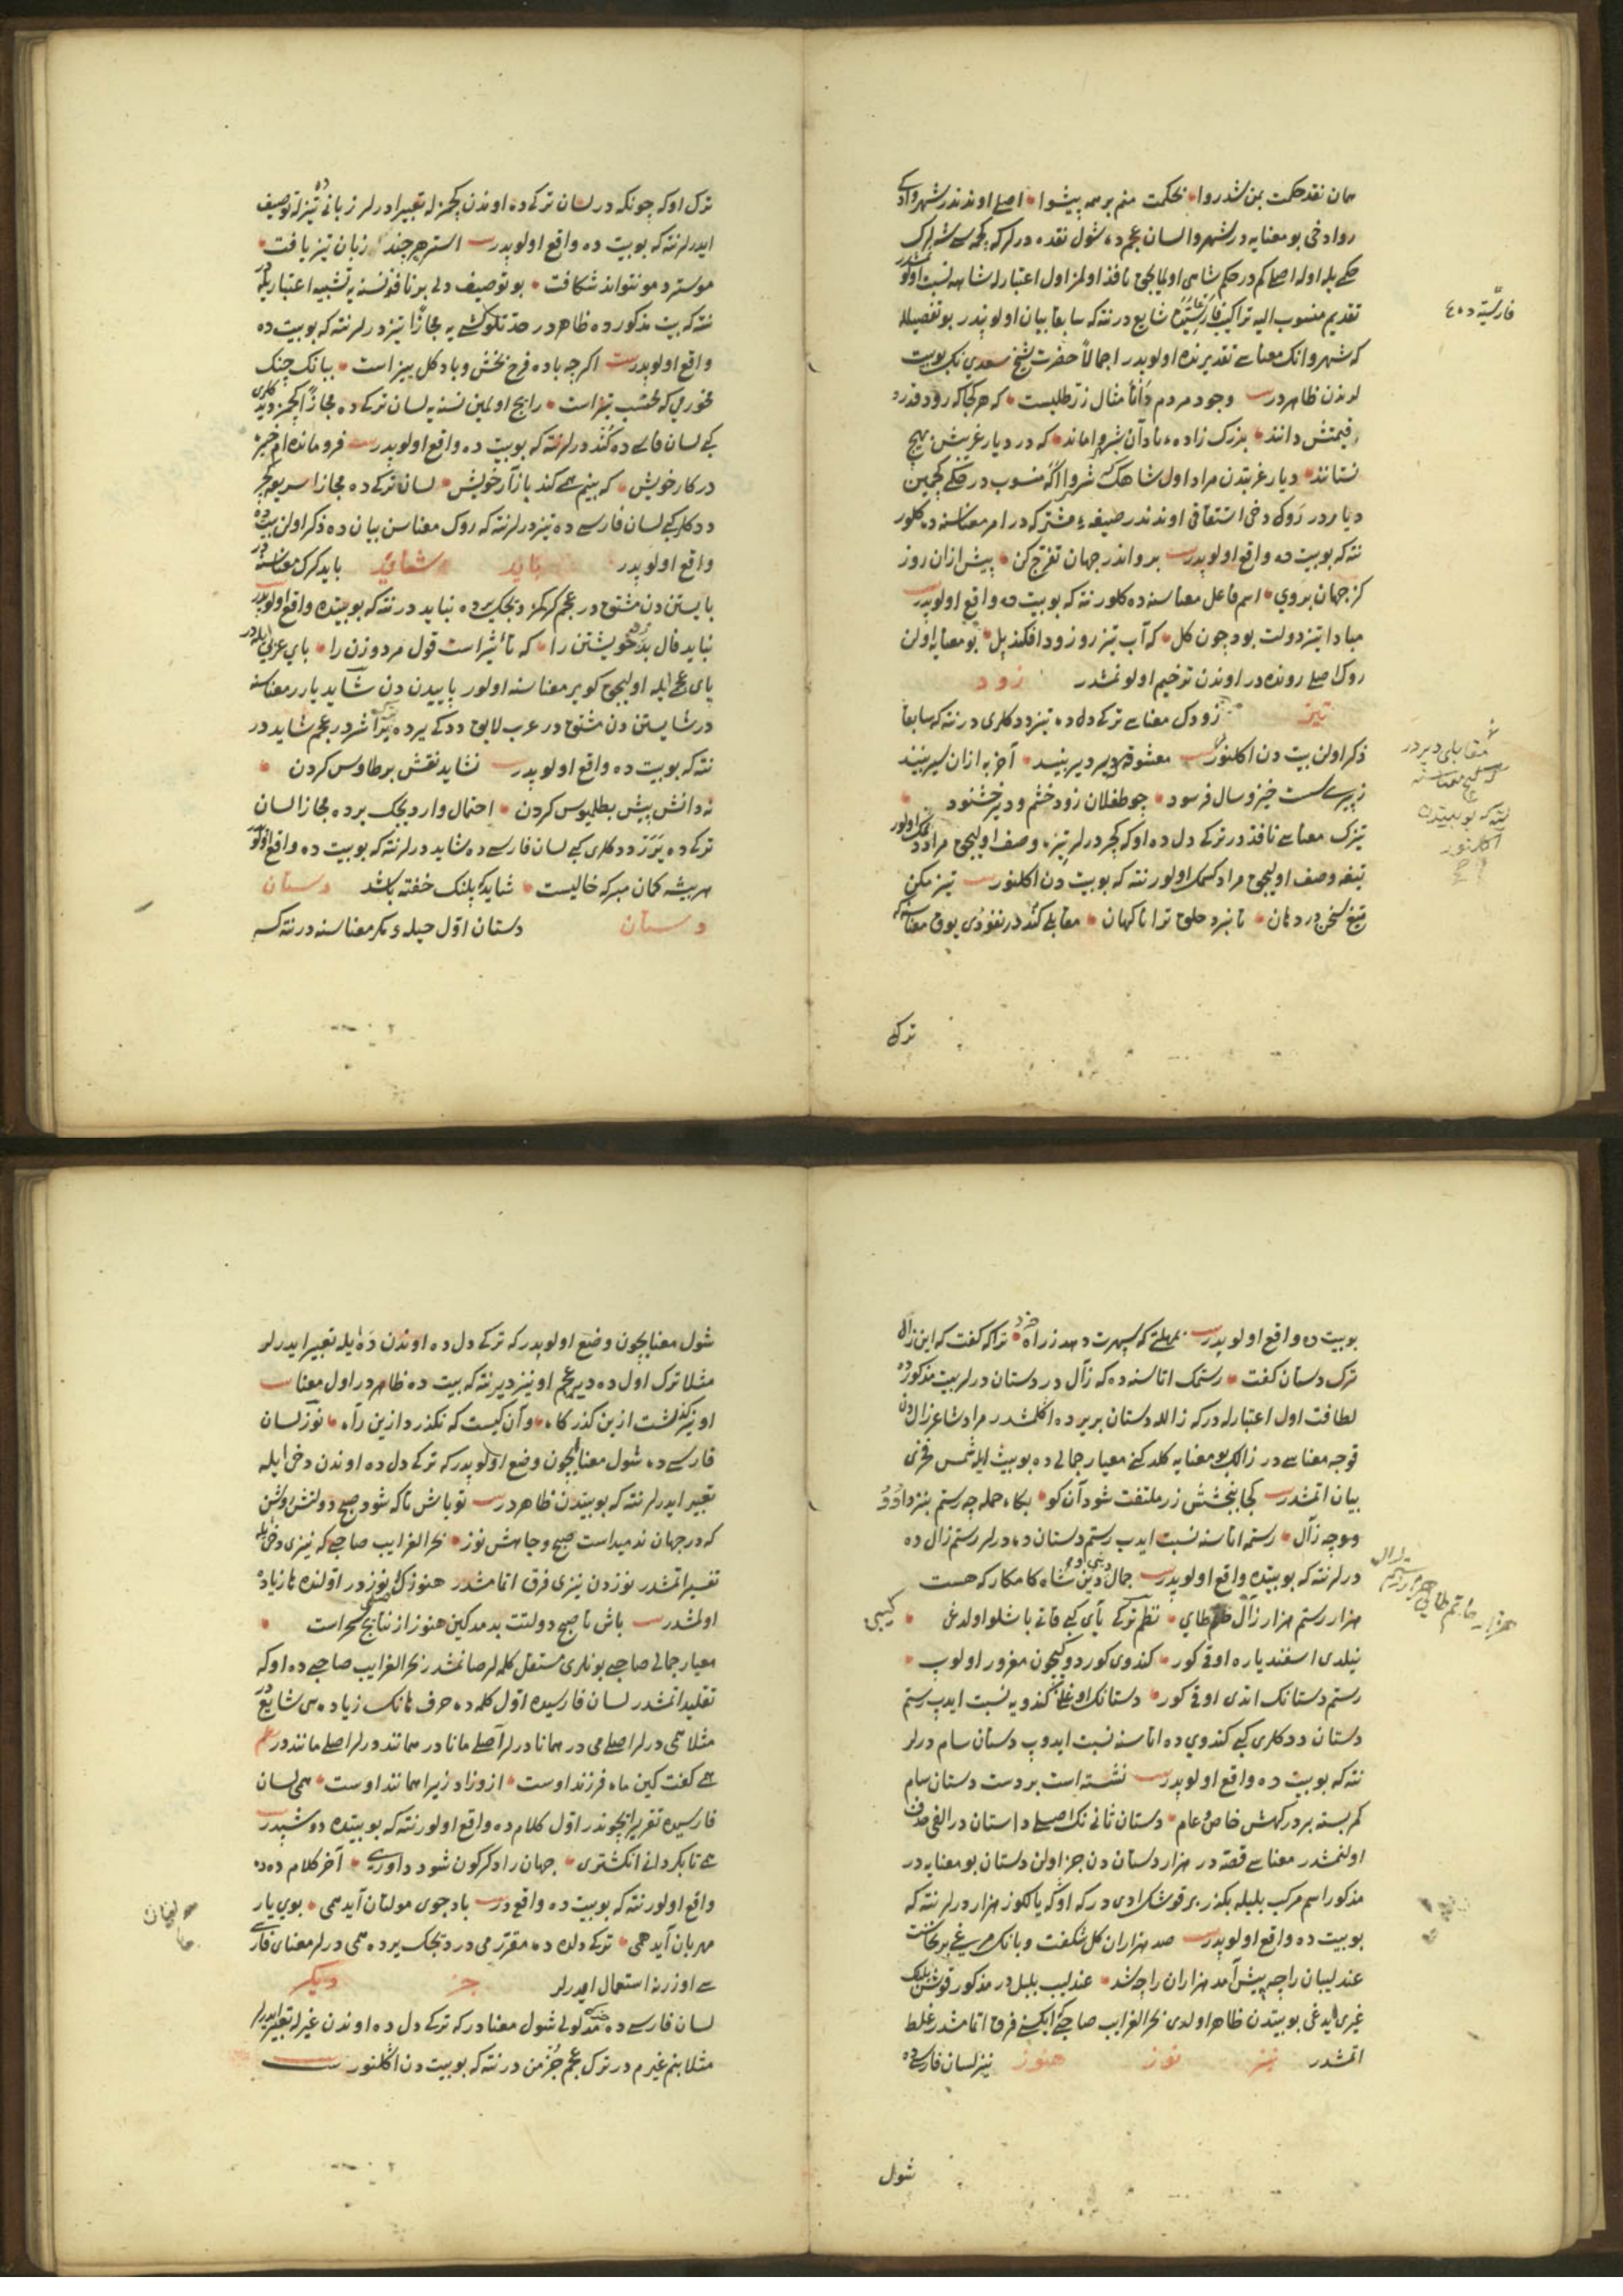 همان نقد حکمت بمن شد روا نحکمت منم بر همه پیشوا اصلی اوندندر شهروادکی
روا دخی بو معنایه در شهروا لسان عجمده شول نقده درلر که
حکی یله اوله اصلی کم در حکم شاهی اولمایجق نافذ اولمز اول اعتبارله شاهه نسبت اولونمشدر
تقدیم منسوب الیه تراکیب فارسیّه ده شایع در نته که سابقا بیان اولوندر بو تفصیله
که شهروانک معناسی تقدیرنده اولوبدر اجمالاً حضرت شیخ سعدی نک بو بیت
لرندن ظاهردر وجود مردم دانا مثال زر طلیست که هر کجا که رود قدر و
قیمتش دانند بزرگ زاده نادان بشهروا ماند که در دیار غریبش بهیچ
نستانند دیار غریبدن مراد اول شاهک شهروا اکا منسوب در حکمی کچمین
دیاردر روک دخی اشتقاقی اوندندر صیغه مشترکه در امر معناسنه ده کلور
نته که بو بیت ده واقع اولوبدر برو اندر جهان تفرج کن پیش ازان روز
کز جهان بروی اسم فاعل معناسنه ده کلور نته که بو بیت ده واقع اولوبدر
مبادا تیز دولت بود چون کل که آب تیز رو زود افکند پل بو معنایه اولن
روک اصلی رونده در اوندن ترخیم اولونمشدر زود
تیز زودک معناسی ترکی دلده تیز ددکلری در نته که سابقا
ذکر اولن بیت دن اکلنور معشوقه که دیر دیر بینند آخر به ازان که سیر بینند
زود خشم و دیر خشنود
تیزک معناسی نافذدر ترکی دل ده اوکه کچر درلر تیزه وصف اولیجق مراد
تیغه وصف اولیجق مراد کسمک اولور نته که بو بیت دن اکلنور تیز مکن
تیغ سخن در دهان تا نبرد حلق ترا ناکهان مقابلی کند در نفوذی یوق معناسنه
ترکی
فارسیّه ده ٤٠
مقابلی دیر در
کیچ معناسنه
نته که بو بیتدن
اکلنور
ترک اوکه چونکه در لسان ترکی ده اوندن کچمز له تعبیر ادرلر زبانی تیزله توصیف
ایدرلر نته که بو بیت ده واقع اولوبدر استر هر چند زبان تیز یافت
موسترد مو نتواند شکافت بو توصیف دلی بر نافذ نسنه یه تشبیه اعتباریله در
نته که بیت مذکورده ظاهردر حدّتلو کشی یه مجازاً تیز درلر نته که بو بیت ده
واقع اولوبدر اکرچه باده فرح بخش و باد کل بیز است ببانک چنک
مخور می که محتسب تیز است رایج اولمین نسنه یه لسان ترکی ده مجازاً کچمز دیدکلری
کبی لسان فارسی ده کند درلر نته که بو بیت ده واقع اولوبدر فرو مانده ام خیره
در کار خویش که بینم همی کند بازار خویش لسان ترکی ده مجازا سریعه کچر
ددکلری کبی لسان فارسی ده تیز درلر نته که روک معناسن بیان ده ذکر اولن بیت ده
واقع اولوبدر باید شاید باید کرک معناسنه در
بایستن دن مشتق در عجم کرکمز دیجک یرده نباید در نته که بو بیتده واقع اولوبدر
نباید فال بد زد خویشتن را که تأثیر است قول مرد و زن را بای عربی ایله در
یای عجمی ایله اولیجق کویر معناسنه اولور پاییدن دن شاید یارر معناسنه
در شایستن دن مشتق در عرب لایق ددکی یرده یراشر در عجم شاید در
نته که بو بیت ده واقع اولوبدر نشاید نقش بر طاوس کردن
نه دانش پیش بطلیوس کردن احتمال وار دیجک یرده مجازا لسان
ترکی ده یرر ددکلری کبی لسان فارسی ده شاید درلر نته که بو بیت ده واقع اولوبدر
هر بیشه کمان مبر که خالیست شاید که پلنک خفته باشد دستان
دستان دستان اوّل حیله و مکر معناسنه در نته که
بو بیت ده واقع اولوبدر بمهلتی که سپهرت دهد ز راه مرو ترا که کفت که این زال
ترک دستان کفت رستمک اتاسنه ده که زال در دستان درلر بیت مذکورده
لطافت اول اعتبارله در که زالله دستان بر یرده اکلمشدر مراد شاعر زال دن
قوجه معناسی در زالک بو معنایه کلدکنی معیار جمالی ده بو بیت ایله شمس فخری
بیان اتمشدر کجا ببخشش زر ملتفت شود آن کو بکاه حمله چه رستم بنزد او و
وچه زال رستمه اتاسنه نسبت ایدب رستم دستان ده درلر رستم زال ده
درلر نته که بو بیتده واقع اولوبدر جمال دنیی و دین شاه کامکار که هست
هزار رستم هزار زال حاتم طایی نظم ترکی یای کبی قاتی باشلو اولدغی
نیلدی اسفندیاره اوقی کور کندوی کوردوکیچون مغرور اولوب
رستم دستانک اتدی اوقی کور دستانک اوغلنی کندویه نسبت ایدب رستم
دستان ددکلری کبی کندوی ده اتاسنه نسبت ایدوب دستان سام درلر
نته که بو بیت ده واقع اولوبدر نشسته است بر دست دستان سام
کمر بسته بر درکهش خاص و عام دستان ثانی نک اصلی داستان در الفی حذف
اولنمشدر معناسی قصّه در هزار دستان دن جزء اولن دستان بو معنایه در
مذکور اسم مرکب بلبله بکزر بر قوشک ادی در که اوکه یالکوز هزار درلر نته که
بو بیت ده واقع اولوبدر صد هزاران کل شکفت و بانک مرغی بر نخاست
عندلیبان را چه پیش آمد هزاران را چه شد عندلیب بلبل در مذکور قوش بلبلک
غیری ایدغی بو بیتدن ظاهر اولدی بحر الغرایب صاحبی ایکسنی فرق اتمامشدر غلط
اتمشدر نیز نوز هنوز نیز لسان فارسی ده
شول
هزار حاتم طایی هزار رستم زال
کیبی
شول معنایچون وضع اولوبدر که ترکی دل ده اوندن دَه ایله تعبیر ایدرلر
مثلا ترک اول ده دیر عجم او نیز دیر نته که بیت ده ظاهردر اول معنا
او نیز گذشت ازین گذرگاه وان کیست که نگذرد ازین راه نوز لسان
فارسی ده شول معنایچون وضع اولوبدر که ترکی دل ده اوندن دخی ایله
تعبیر ایدرلر نته که بو بیتدن ظاهردر تو باش تا که شود صبح دولتش روشن
که در جهان ندمیداست صبح و جاهش نوز بحر الغرایب صاحبی که نیزی دخی ایله
تفسیر اتمشدر نوزدن نیزی فرق اتمامشدر هنوزک اصلی نوزدر اوّلنده ها زیاده
اولمشدر باش تا صبح دولتت بدمد کین هنوز از نتایج سحر است
معیار جمالی صاحبی بونلری مستقل کلمه لر صانمشدر بحر الغرایب صاحبی ده اوکه
تقلید اتمشدر لسان فارسیده اوّل کلمه ده حرف هانک زیاده سی شایع در
مثلا همی درلر اصلی می در همانا درلر اصلی مانا در همانند درلر اصلی مانند در
همی کفت کین ماه فرزند اوست ازو زاد زیرا همانند اوست همی لسان
فارسیده تقریر ایچوندر اوّل کلام ده واقع اولور نته که بو بیتده دوشبدر
همی تا بکردانی انکشتری جهان را دکرکون شود داوری آخر کلام ده ده
واقع اولور نته که بو بیت ده واقع در باد جوی مولیان آید همی بوی یار
مهربان آید همی ترکی دلده ده مقرّر می در دیجک یرده همی درلر معنای فارسی
سی اوزرنه استعمال ایدرلر جز دیکر
لسان فارسی ده جزک مدلولی شول معنادر که ترکی دل ده اوندن غیرله تعبیر ایدرلر
مثلا بنم غیرم در ترک عجم جز من در نته که بو بیت دن اکلنور